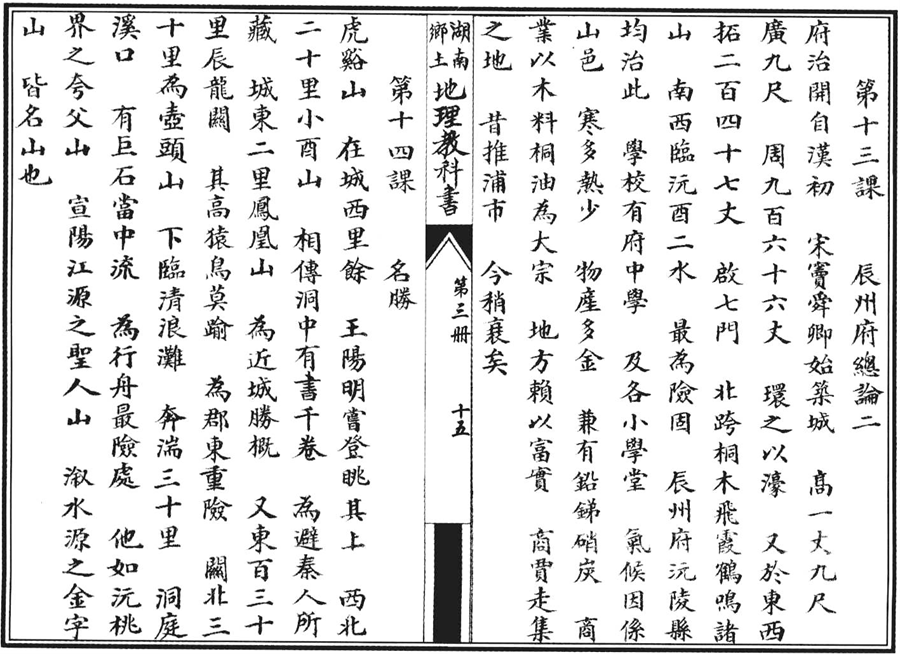 第十三課　辰州府總論二
府治開自漢初　宋竇舜卿始築城　高一丈九尺
廣九尺　周九百六十六丈　環之以濠　又於東西
拓二百四十七丈　啟七門　北跨桐木飛霞鶴鳴諸
山　南西臨沅酉二水　最為險固　辰州府沅陵縣
均治此　學校有府中學　及各小學堂　氣候因係
山邑　寒多熱少　物產多金　兼有鉛銻硝炭　商
業以木料桐油為大宗　地方賴以富實　商賈走集
之地　昔推浦市　今稍衰矣
湖南鄉土地理教科書　第三册　十五
第十四課　名勝
虎谿山　在城西里餘　王陽明嘗登眺其上　西北
二十里小酉山　相傳洞中有書千卷　為避秦人所
藏　城東二里鳳凰山　為近城勝概　又東百三十
里辰龍關　其高猿鳥莫踰　為郡東重險　關北三
十里為壺頭山　下臨清浪灘　奔湍三十里　洞庭
溪口　有巨石當中流　為行舟最險處　他如沅桃
界之夸父山　宣陽江源之聖人山　溆水源之金字
山　皆名山也